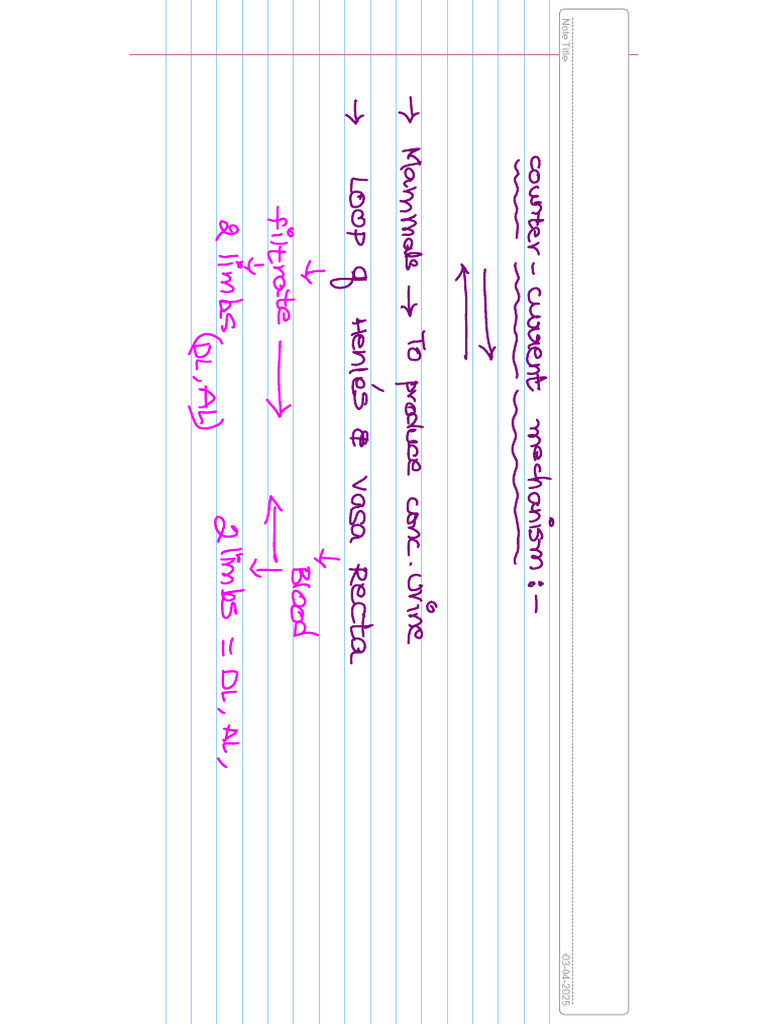 Note Title
03-04-2025
counter-current mechanism:-
→ Mammals → To produce conc. urine
→ Loop of Henle's & vasa Recta
↓ ↓
filtrate → ← Blood
↓ ↓
2 limbs (DL, AL) 2 limbs = DL, AL,